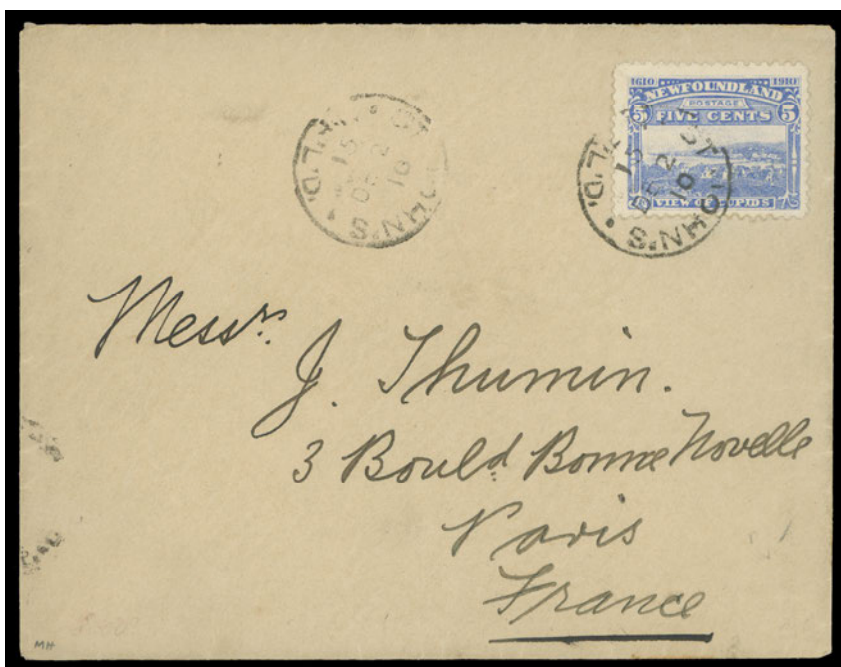 1610 1910
NEWFOUNDLAND
POSTAGE
5 FIVE CENTS 5
VIEW OF CUPIDS
ST JOHN'S N'F'L'D.
15
DE 2
10
ST JOHN'S N'F'L'D.
15
DE 2
10
Messrs.
J. Thumin.
3 Bould. Bonne Novelle
Paris
France
MH